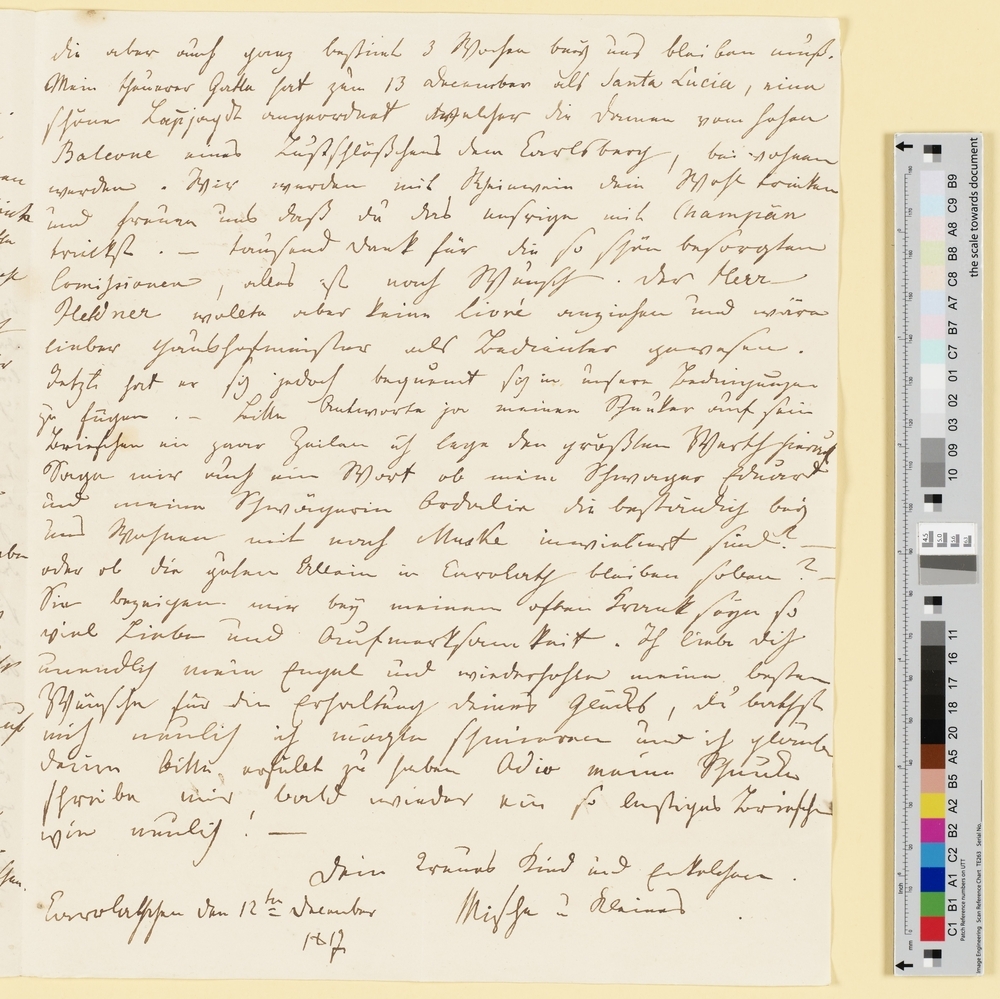 die aber auch ganz bestimt 3 Wochen bey uns bleiben muß.
Mein theurer Gatte hat zum 13 december als Santa Lucia, eine
schöne Lapjagdt angeordnet welcher die Damen vom hohen
Balcone eines Lustschlößchens dem Carlsberg, bei wohnen
werden. Wir werden mit Rheinwein dein Wohl trinken
und freuen uns daß du das unsrige mit Champàn
trinkst. — tausend Dank für die so schön besorgten
Comissionen, alles ist nach Wunsch. der Herr
Heldner wolte aber keine livré anziehen und wäre
lieber Haushofmeister als Bedienter gewesen.
Jetzt hat er sich jedoch bequemt sich in unsere Bedingungen
zu fügen. — bitte Antworte ja meinen Schuker auf sein
Briefchen ein paar Zeilen ich lege den größten Werth hierauf
Sage mir auch ein Wort ob mein Schwager Eduard
und meine Schwägerin Ordalie die beständig bey
uns Wohnen mit nach Muske invietiert sind? —
oder ob die guten Allein in Carolath bleiben solen? —
Sie bezeigen mir bey meinem often Krank seyn so
viel Liebe und Aufmerksamkeit. Ich liebe dich
unendlich mein Engel und wiederhohle meine besten
Wünsche für die Erhaltung deines Glücks, du bathst
mich neulich ich mögte schmieren und ich glaube
deine bitte erfület zu haben Adio meine
schreibe mir bald wieder ein so lustiges Briefchen
wie neulich! —
Dein treues Kind und Enkelchen.
Carolathchen den 12ten december Mischa u Kleines
1817